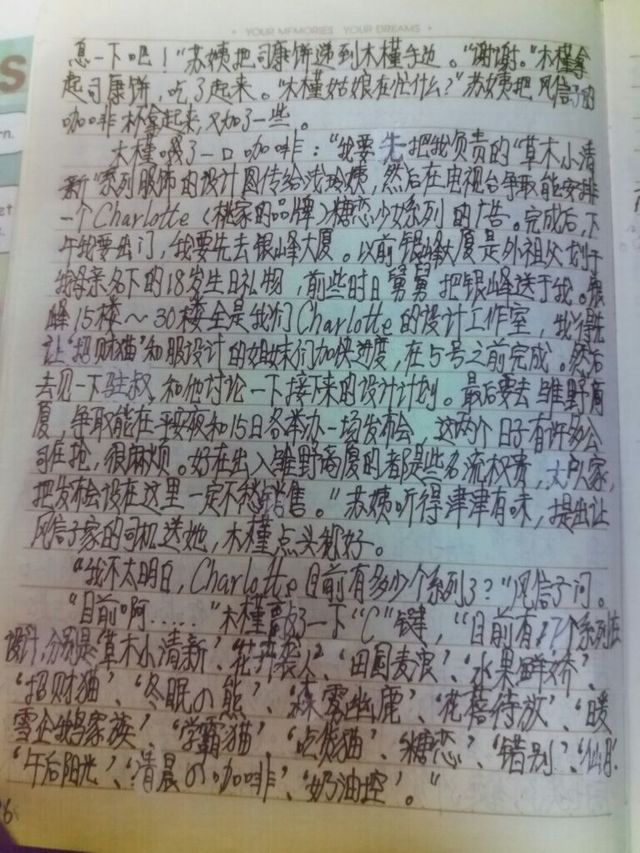 · YOUR MEMORIES YOUR DREAMS ·
息一下吧！”苏姨把司康饼递到木槿手边。“谢谢。”木槿拿
起司康饼，吃了起来。“木槿姑娘在忙什么？”苏姨把风信子的
咖啡杯拿起来，又加了一些。
木槿喝了一口咖啡：“我要先把我负责的“草木小清
新”系列服饰的设计图传给浅玲姨，然后在电视台争取能安排
一个Charlotte（桃家的品牌）糖恋少女系列的广告。完成后，下
午我要出门，我要先去银峰大厦。以前银峰大厦是外祖父划于
我母亲名下的18岁生日礼物，前些时日舅舅把银峰送于我。银
峰15楼～30楼全是我们Charlotte的设计工作室，我得先
让“招财猫”和服设计的姐妹们加快进度，在5号之前完成。然后
去见一下驻叔，和他讨论一下接下来的设计计划。最后要去雏野商
厦，争取能在平安夜和15日各举办一场发布会，这两个日子有许多公
司在抢，很麻烦。好在出入雏野商厦的都是些名流权贵，大户人家，
把发布会设在这里一定不愁销售。”苏姨听得津津有味，提出让
风信子家的司机送她，木槿点头都好。
“我不太明白，Charlotte目前有多少个系列了？”风信子问。
“目前啊……”木槿敲了一下“C”键，“目前有17个系列在
设计，分别是‘草木小清新’、‘花卉袭人’、‘田园麦浪’、‘水果鲜娇’、
‘招财猫’、‘冬眠の熊’、‘森雾幽鹿’、‘花蓓待放’、‘暖
雪企鹅家族’、‘学霸猫’、‘吃货猫’、‘糖恋’、‘错别’、
‘午后阳光’、‘清晨の咖啡’、‘奶油控’。”